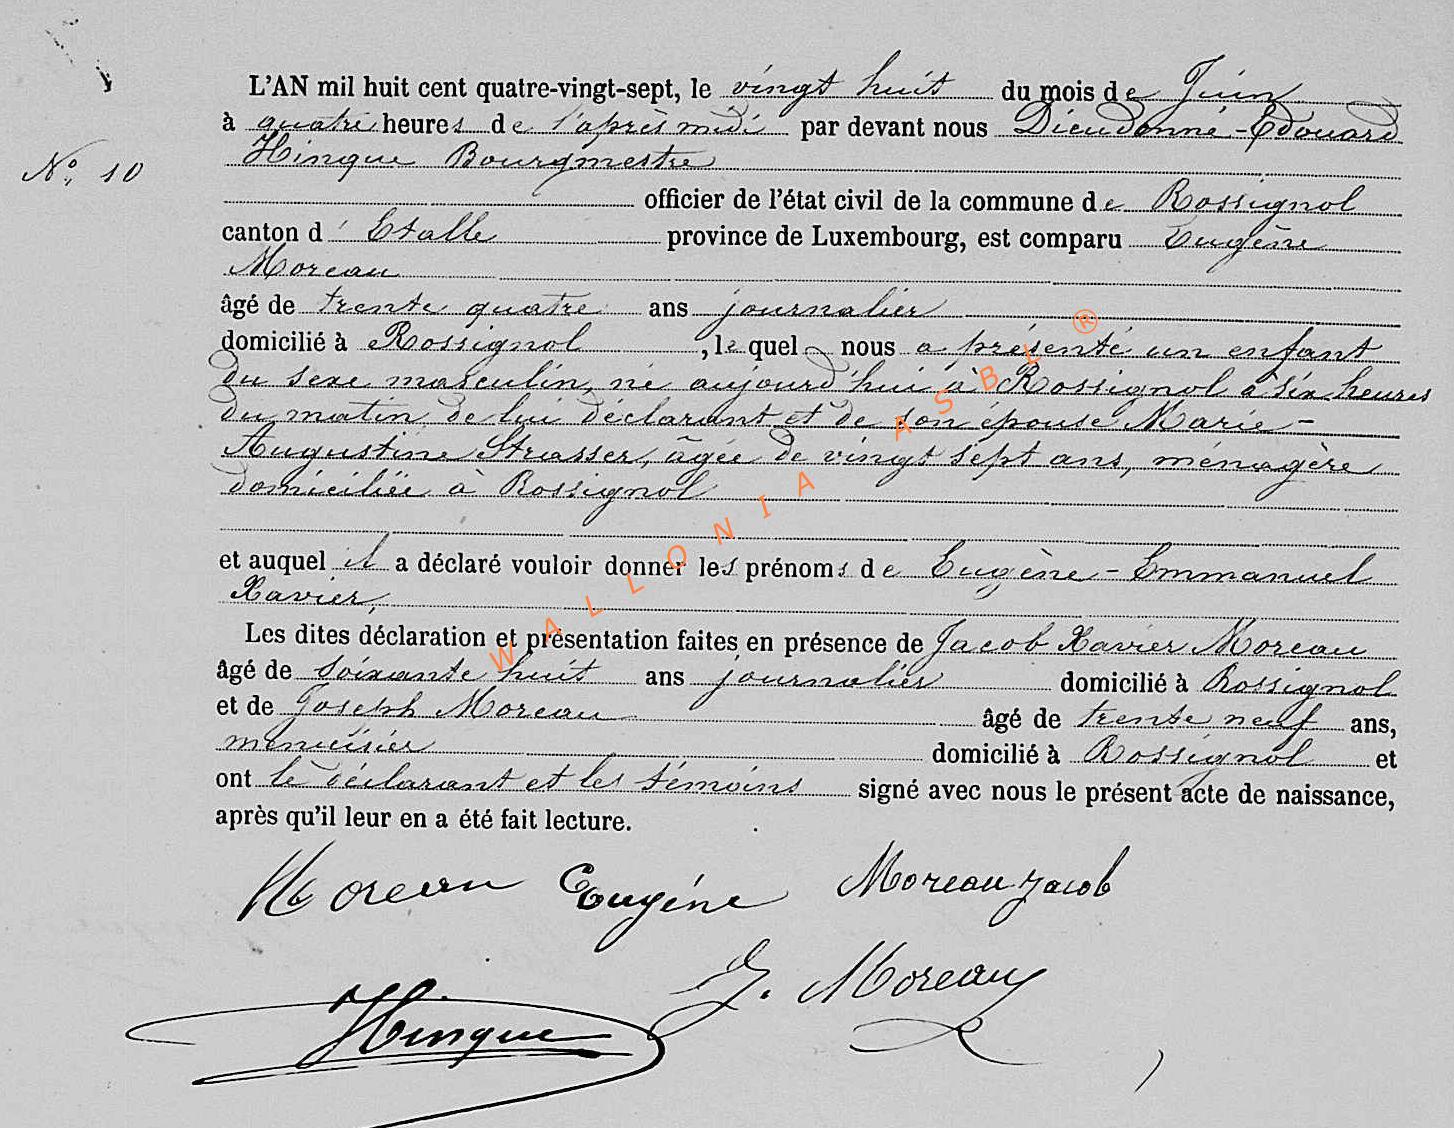 L'AN mil huit cent quatre-vingt-sept, le vingt huit du mois de Juin
à quatre heures de l'après midi par devant nous Dieudonné-Edouard
No. 10
Hinque Bourgmestre
officier de l'état civil de la commune de Rossignol
canton d' Etalle province de Luxembourg, est comparu Eugène
Moreau
âgé de trente quatre ans journalier
domicilié à Rossignol, lequel nous a présenté un enfant
du sexe masculin, né aujourd'hui à Rossignol à six heures
du matin, de lui déclarant et de son épouse Marie-
Augustine Strasser, âgée de vingt sept ans, ménagère
domiciliée à Rossignol
et auquel il a déclaré vouloir donner les prénoms de Eugène-Emmanuel
Xavier,
Les dites déclaration et présentation faites en présence de Jacob Xavier Moreau
âgé de soixante huit ans journalier domicilié à Rossignol
et de Joseph Moreau âgé de trente neuf ans,
menuisier domicilié à Rossignol et
ont le déclarant et les témoins signé avec nous le présent acte de naissance,
après qu'il leur en a été fait lecture.
Moreau Eugène Moreau Jacob
J. Moreau
Hinque
WALLONIA ASBL ®